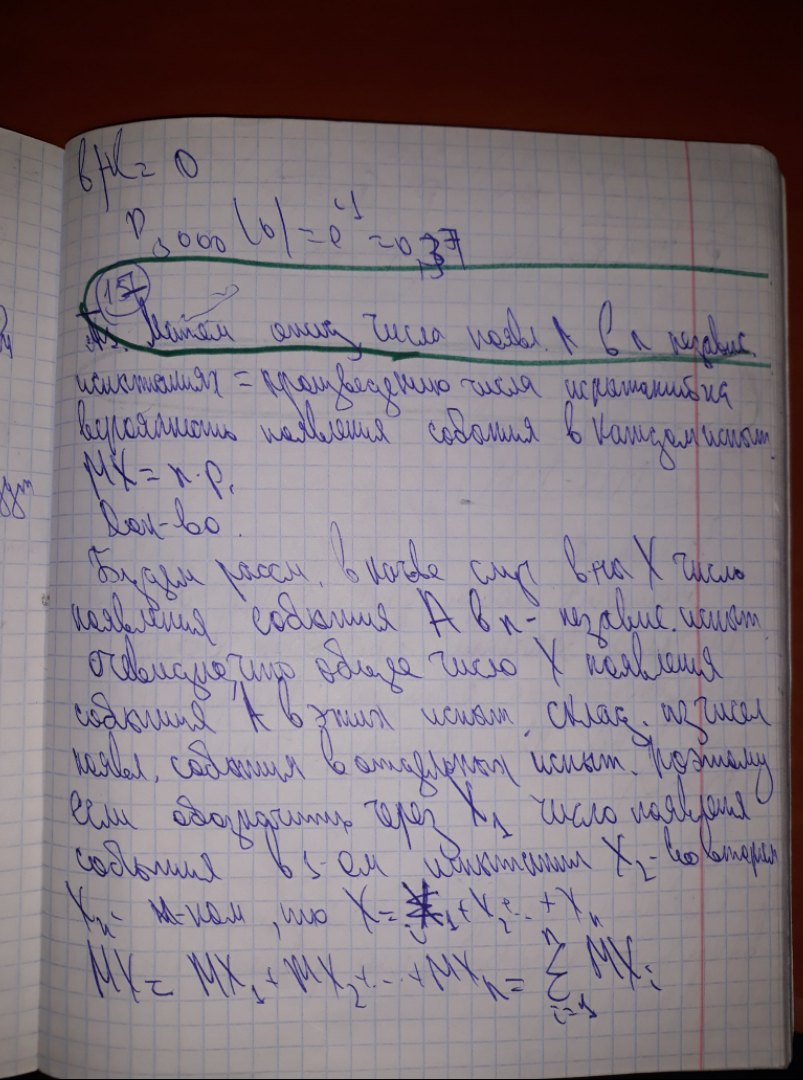 в) k = 0
P₅₀₀₀(0) = e⁻¹ = 0,37
15
Матем ожид числа появл. A в n независ.
испытаниях = произведению числа испытаний на
вероятность появления события в каждом испыт.
MX = n·p,
Док-во.
Будем рассм. в кач-ве случ в-ны X число
появления события A в n - независ. испыт.
Очевидно, что общее число X появления
события A в этих испыт. склад. из чисел
появл. события в отдельных испыт. Поэтому
если обозначить через X₁ число появления
события в 1-ом испытании X₂ - во втором
Xₙ - n-ном, то X = X₁ + X₂ ... + Xₙ
MX = MX₁ + MX₂ + ... + MXₙ = ∑ⁿᵢ₌₁ MXᵢ